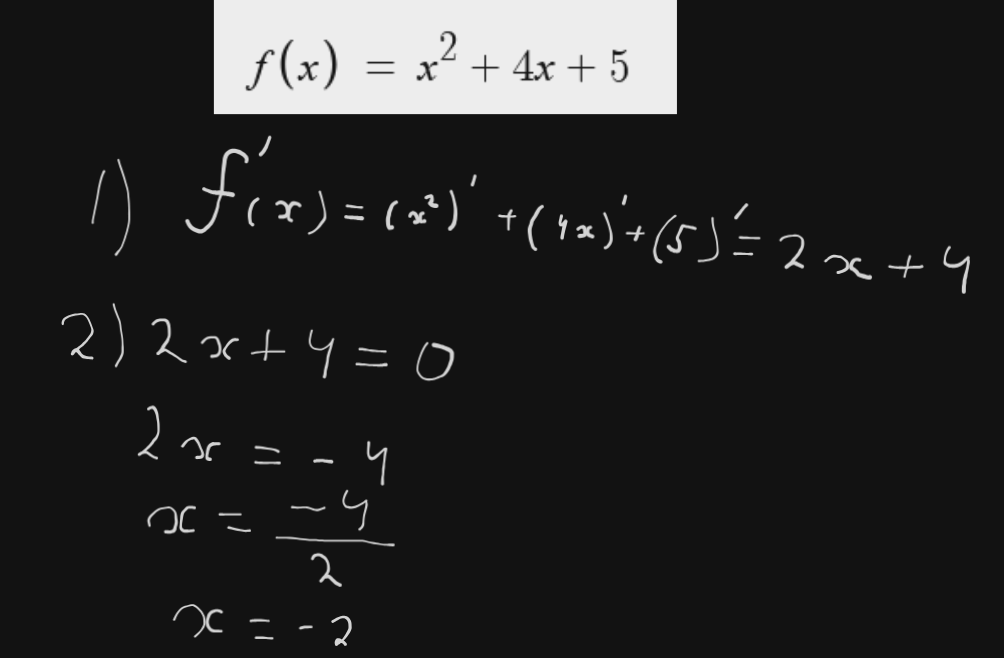 f(x) = x² + 4x + 5
1) f'(x) = (x²)' + (4x)' + (5)' = 2x + 4
2) 2x + 4 = 0
2x = -4
x = -4/2
x = -2